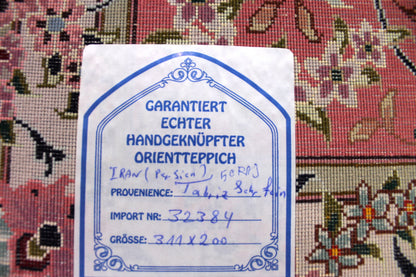 GARANTIERT
ECHTER
HANDGEKNÜPFTER
ORIENTTEPPICH
IRAN (Persien),
PROVENIENCE: Tabriz Sehr fein
IMPORT NR: 32384
GRÖSSE: 311 x 200